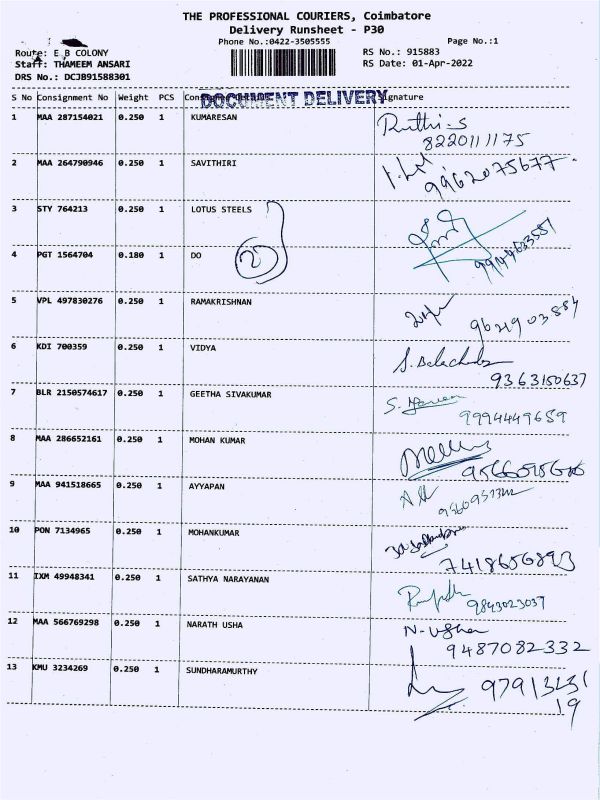 THE PROFESSIONAL COURIERS, Coimbatore
Delivery Runsheet - P30
Phone No.:0422-3505555 Page No.:1
Route: E B COLONY RS No.: 915883
Staff: THAMEEM ANSARI RS Date: 01-Apr-2022
DRS No.: DCJ891588301
S No Consignment No Weight PCS Signature
DOCUMENT DELIVERY
1 MAA 287154021 0.250 1 KUMARESAN
8220111175
2 MAA 264790946 0.250 1 SAVITHIRI
9962075677
3 STY 764213 0.250 1 LOTUS STEELS
4 PGT 1564704 0.180 1 DO
2
5 VPL 497830276 0.250 1 RAMAKRISHNAN
6 KDI 700359 0.250 1 VIDYA
9363150637
7 BLR 2150574617 0.250 1 GEETHA SIVAKUMAR
9994449659
8 MAA 286652161 0.250 1 MOHAN KUMAR
9 MAA 941518665 0.250 1 AYYAPAN
10 PON 7134965 0.250 1 MOHANKUMAR
7418656893
11 IXM 49948341 0.250 1 SATHYA NARAYANAN
9843023037
12 MAA 566769298 0.250 1 NARATH USHA N-Usha
9487082332
13 KMU 3234269 0.250 1 SUNDHARAMURTHY
19